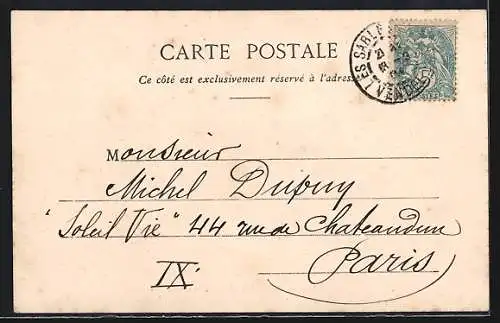 CARTE POSTALE
Ce côté est exclusivement réservé à l'adresse
LES SABLE
21
VENDEE
Monsieur
Michel Dupuy
"Soleil Vie" 44 rue de Chateaudun
Paris
IX.